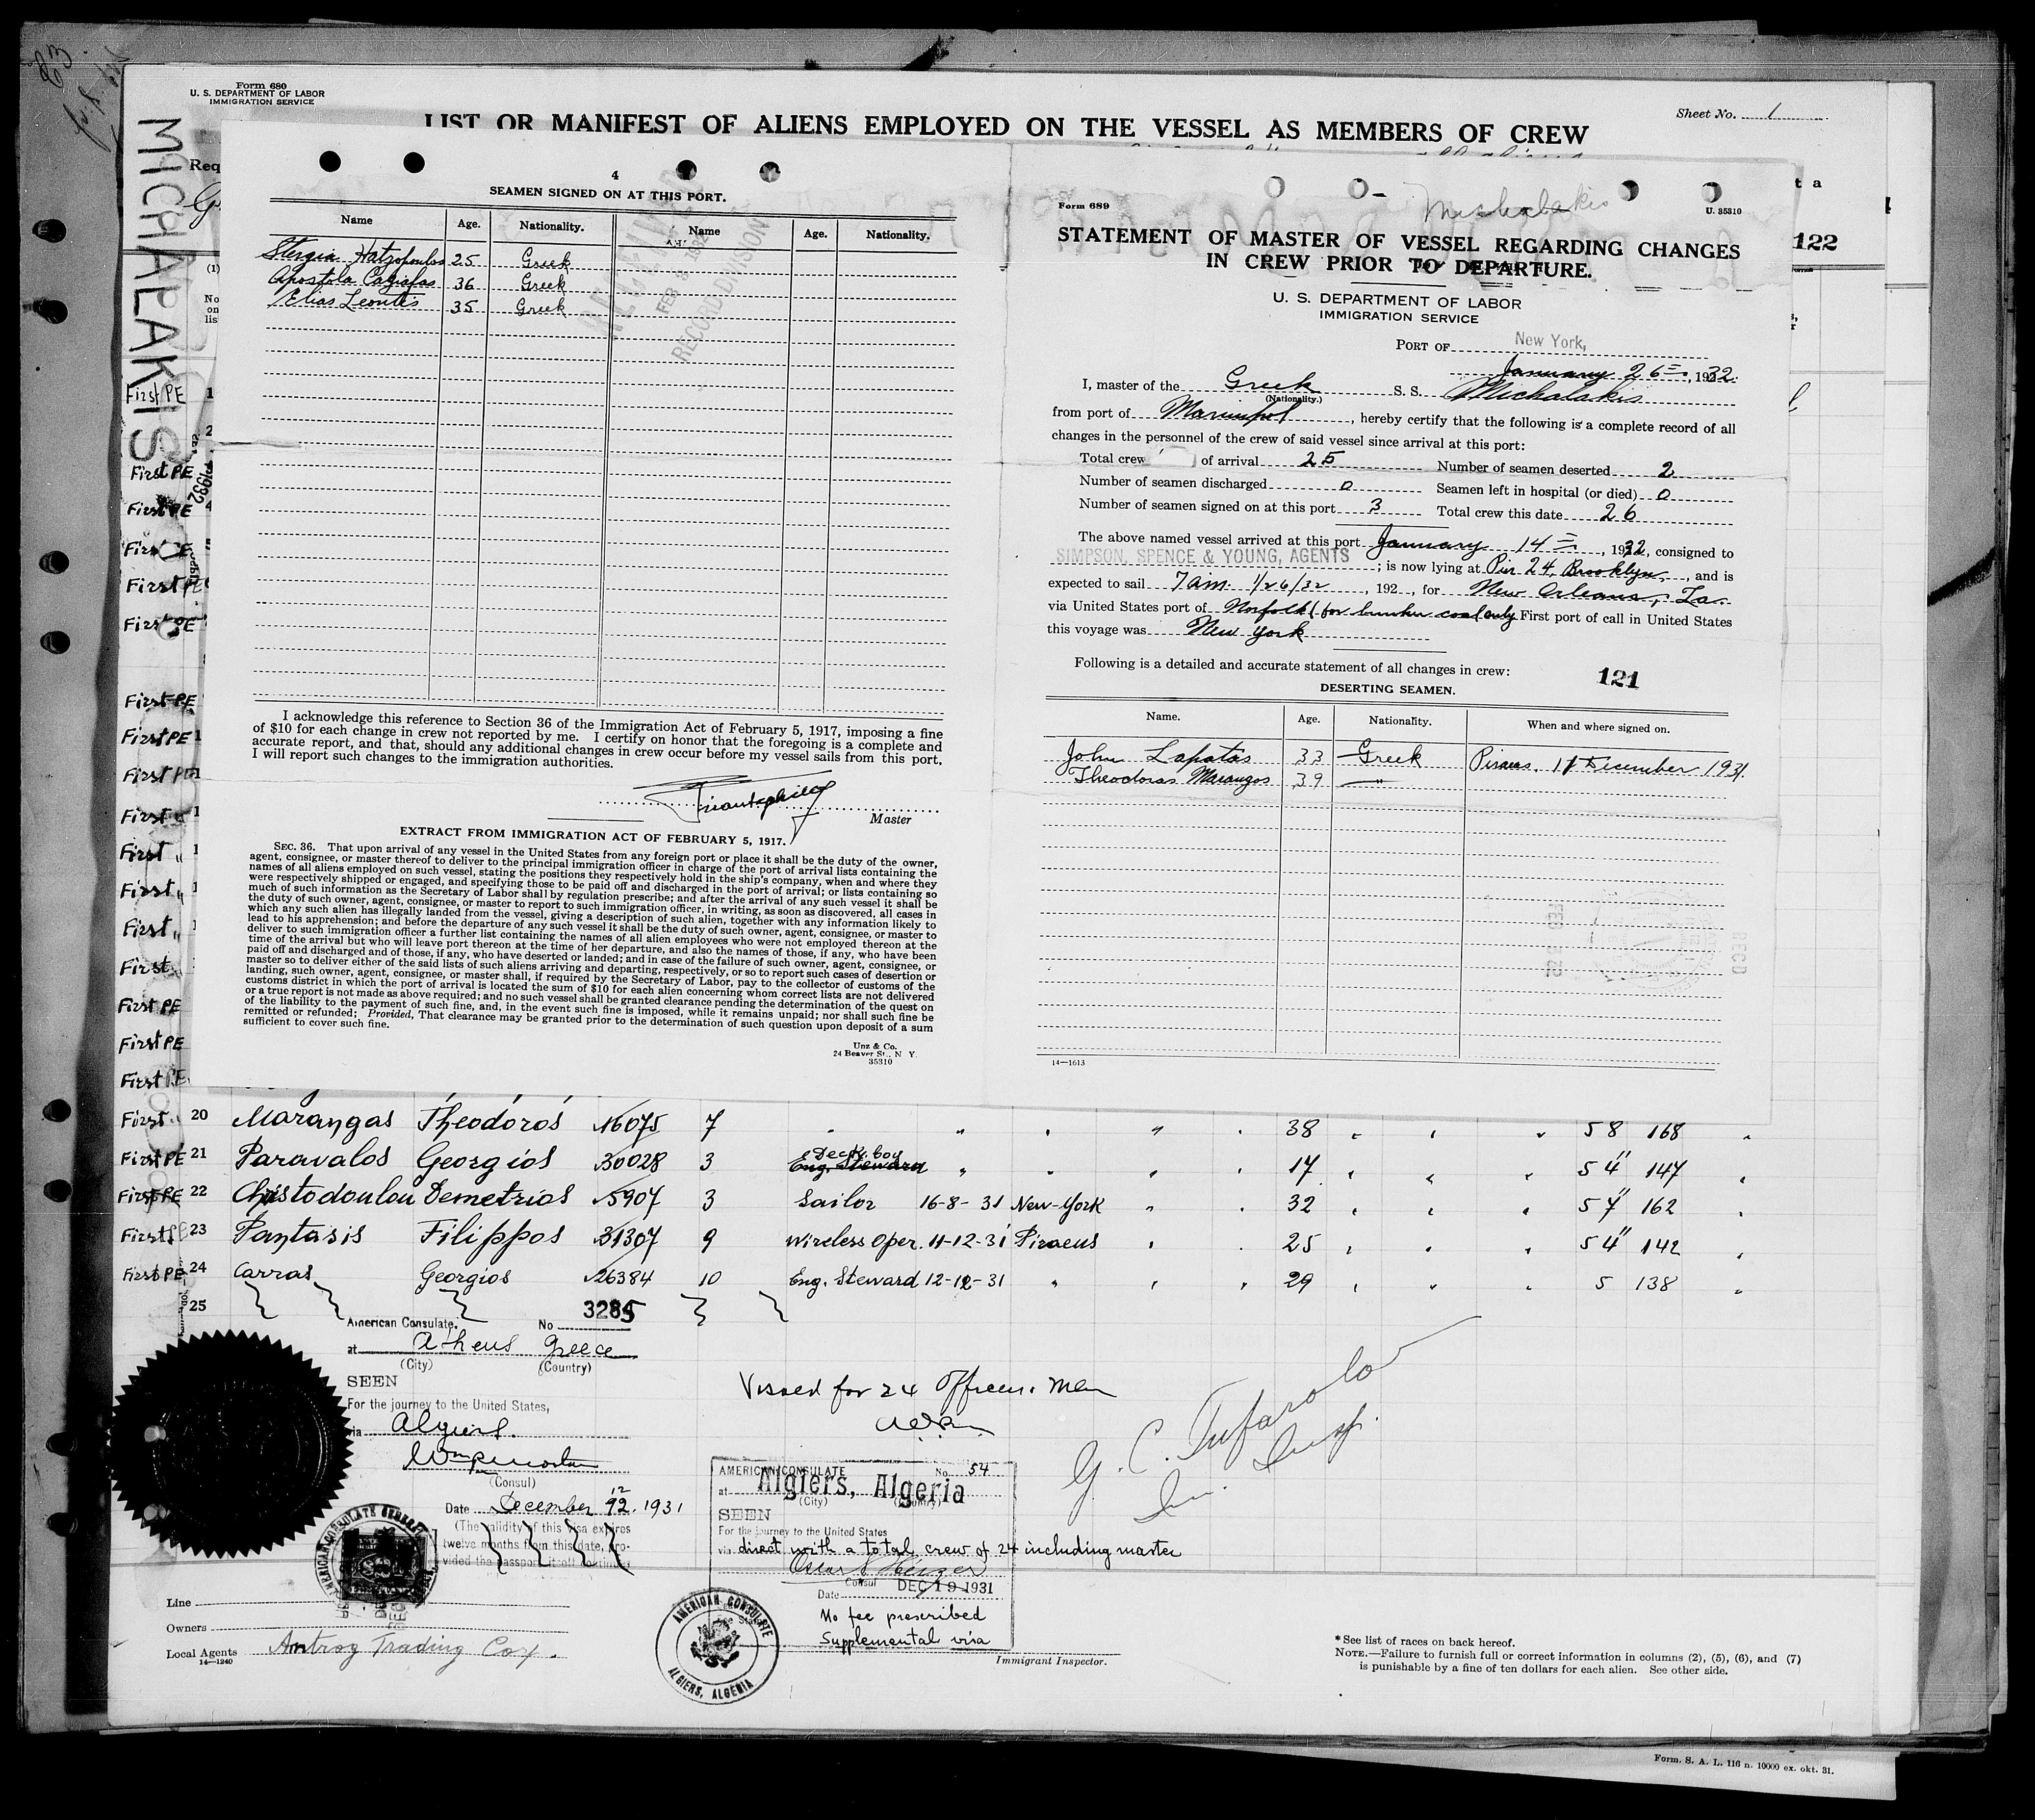 Form 680
U. S. DEPARTMENT OF LABOR
IMMIGRATION SERVICE
Sheet No. 1
LIST OR MANIFEST OF ALIENS EMPLOYED ON THE VESSEL AS MEMBERS OF CREW
MICHALAKIS
Req
122
4
SEAMEN SIGNED ON AT THIS PORT.
Name Age. Nationality. Name Age. Nationality.
Stergia Hatzopoulos 25 Greek
Apostola Cagiafas 36 Greek
Elias Leontis 35 Greek
RECEIVED
FEB 3 1932
RECORD DIVISION
I acknowledge this reference to Section 36 of the Immigration Act of February 5, 1917, imposing a fine
of $10 for each change in crew not reported by me. I certify on honor that the foregoing is a complete and
accurate report, and that, should any additional changes in crew occur before my vessel sails from this port,
I will report such changes to the immigration authorities.
Master
EXTRACT FROM IMMIGRATION ACT OF FEBRUARY 5, 1917.
SEC. 36. That upon arrival of any vessel in the United States from any foreign port or place it shall be the duty of the owner,
agent, consignee, or master thereof to deliver to the principal immigration officer in charge of the port of arrival lists containing the
names of all aliens employed on such vessel, stating the positions they respectively hold in the ship's company, when and where they
were respectively shipped or engaged, and specifying those to be paid off and discharged in the port of arrival; or lists containing so
much of such information as the Secretary of Labor shall by regulation prescribe; and after the arrival of any such vessel it shall be
the duty of such owner, agent, consignee, or master to report to such immigration officer, in writing, as soon as discovered, all cases in
which any such alien has illegally landed from the vessel, giving a description of such alien, together with any information likely to
lead to his apprehension; and before the departure of any such vessel it shall be the duty of such owner, agent, consignee, or master to
deliver to such immigration officer a further list containing the names of all alien employees who were not employed thereon at the
time of the arrival but who will leave port thereon at the time of her departure, and also the names of those, if any, who have been
paid off and discharged and of those, if any, who have deserted or landed; and in case of the failure of such owner, agent, consignee, or
master so to deliver either of the said lists of such aliens arriving and departing, respectively, or so to report such cases of desertion or
landing, such owner, agent, consignee, or master shall, if required by the Secretary of Labor, pay to the collector of customs of the
customs district in which the port of arrival is located the sum of $10 for each alien concerning whom correct lists are not delivered
or a true report is not made as above required; and no such vessel shall be granted clearance pending the determination of the quest on
of the liability to the payment of such fine, and, in the event such fine is imposed, while it remains unpaid; nor shall such fine be
remitted or refunded; Provided, That clearance may be granted prior to the determination of such question upon deposit of a sum
sufficient to cover such fine.
Unz & Co.
24 Beaver St., N. Y.
35310
Michalakis
Form 689
U. 35310
STATEMENT OF MASTER OF VESSEL REGARDING CHANGES
IN CREW PRIOR TO DEPARTURE.
U. S. DEPARTMENT OF LABOR
IMMIGRATION SERVICE
PORT OF New York,
January 26, 1932.
I, master of the Greek S. S. Michalakis
(Nationality.)
from port of Mariupol, hereby certify that the following is a complete record of all
changes in the personnel of the crew of said vessel since arrival at this port:
Total crew of arrival 25 Number of seamen deserted 2
Number of seamen discharged 0 Seamen left in hospital (or died) 0
Number of seamen signed on at this port 3 Total crew this date 26
The above named vessel arrived at this port January 14, 1932, consigned to
SIMPSON, SPENCE & YOUNG, AGENTS; is now lying at Pier 24, Brooklyn, and is
expected to sail 7 am 1/26/32, 192 , for New Orleans, La.
via United States port of Norfolk (for bunker coal only First port of call in United States
this voyage was New York
Following is a detailed and accurate statement of all changes in crew:
121
DESERTING SEAMEN.
Name. Age. Nationality. When and where signed on.
John Lapatas 33 Greek Piraeus. 11 December 1931.
Theodoras Marangos 39 "
RECD
FEB 3 32
14—1613
First 20 Marangas Theodoros 16075 7 " " " " " 38 " " " 5 8 168 "
First PE 21 Paravalos Georgios 30028 3 Deck boy Eng. Steward " " " " 17 " " " 5 4" 147 "
First PE 22 Christodoulou Demetrios 5907 3 Sailor 16-8-31 New-York " " 32 " " " 5 7" 162 "
First 23 Pantasis Filippos 31307 9 Wireless Oper. 11-12-31 Piraeus " " 25 " " " 5 4" 142 "
First PE 24 Carras Georgios 26384 10 Eng. Steward 12-12-31 " " " 29 " " " 5 138 "
25
American Consulate. No 3285
at Athens Greece
(City) (Country)
SEEN
For the journey to the United States,
via Algiers.
(Consul)
Date December 12. 1931
(The validity of this visa expires
twelve months from this date, pro-
vided the passport itself continues
Visaed for 24 Officers & Men
G. C. Tufarolo
Im. Insp.
AMERICAN CONSULATE No. 54
at Algiers, Algeria
(City) (Country)
SEEN
For the journey to the United States
via direct with a total crew of 24 including master
Consul
Date DEC 19 1931
No fee prescribed
Supplemental visa
AMERICAN CONSULATE
ALGIERS, ALGERIA
Line
Owners
Local Agents Antroy Trading Coy.
14—1240
Immigrant Inspector.
*See list of races on back hereof.
NOTE.—Failure to furnish full or correct information in columns (2), (5), (6), and (7)
is punishable by a fine of ten dollars for each alien. See other side.
Form. S. A. L. 116 n. 10000 ex. okt. 31.